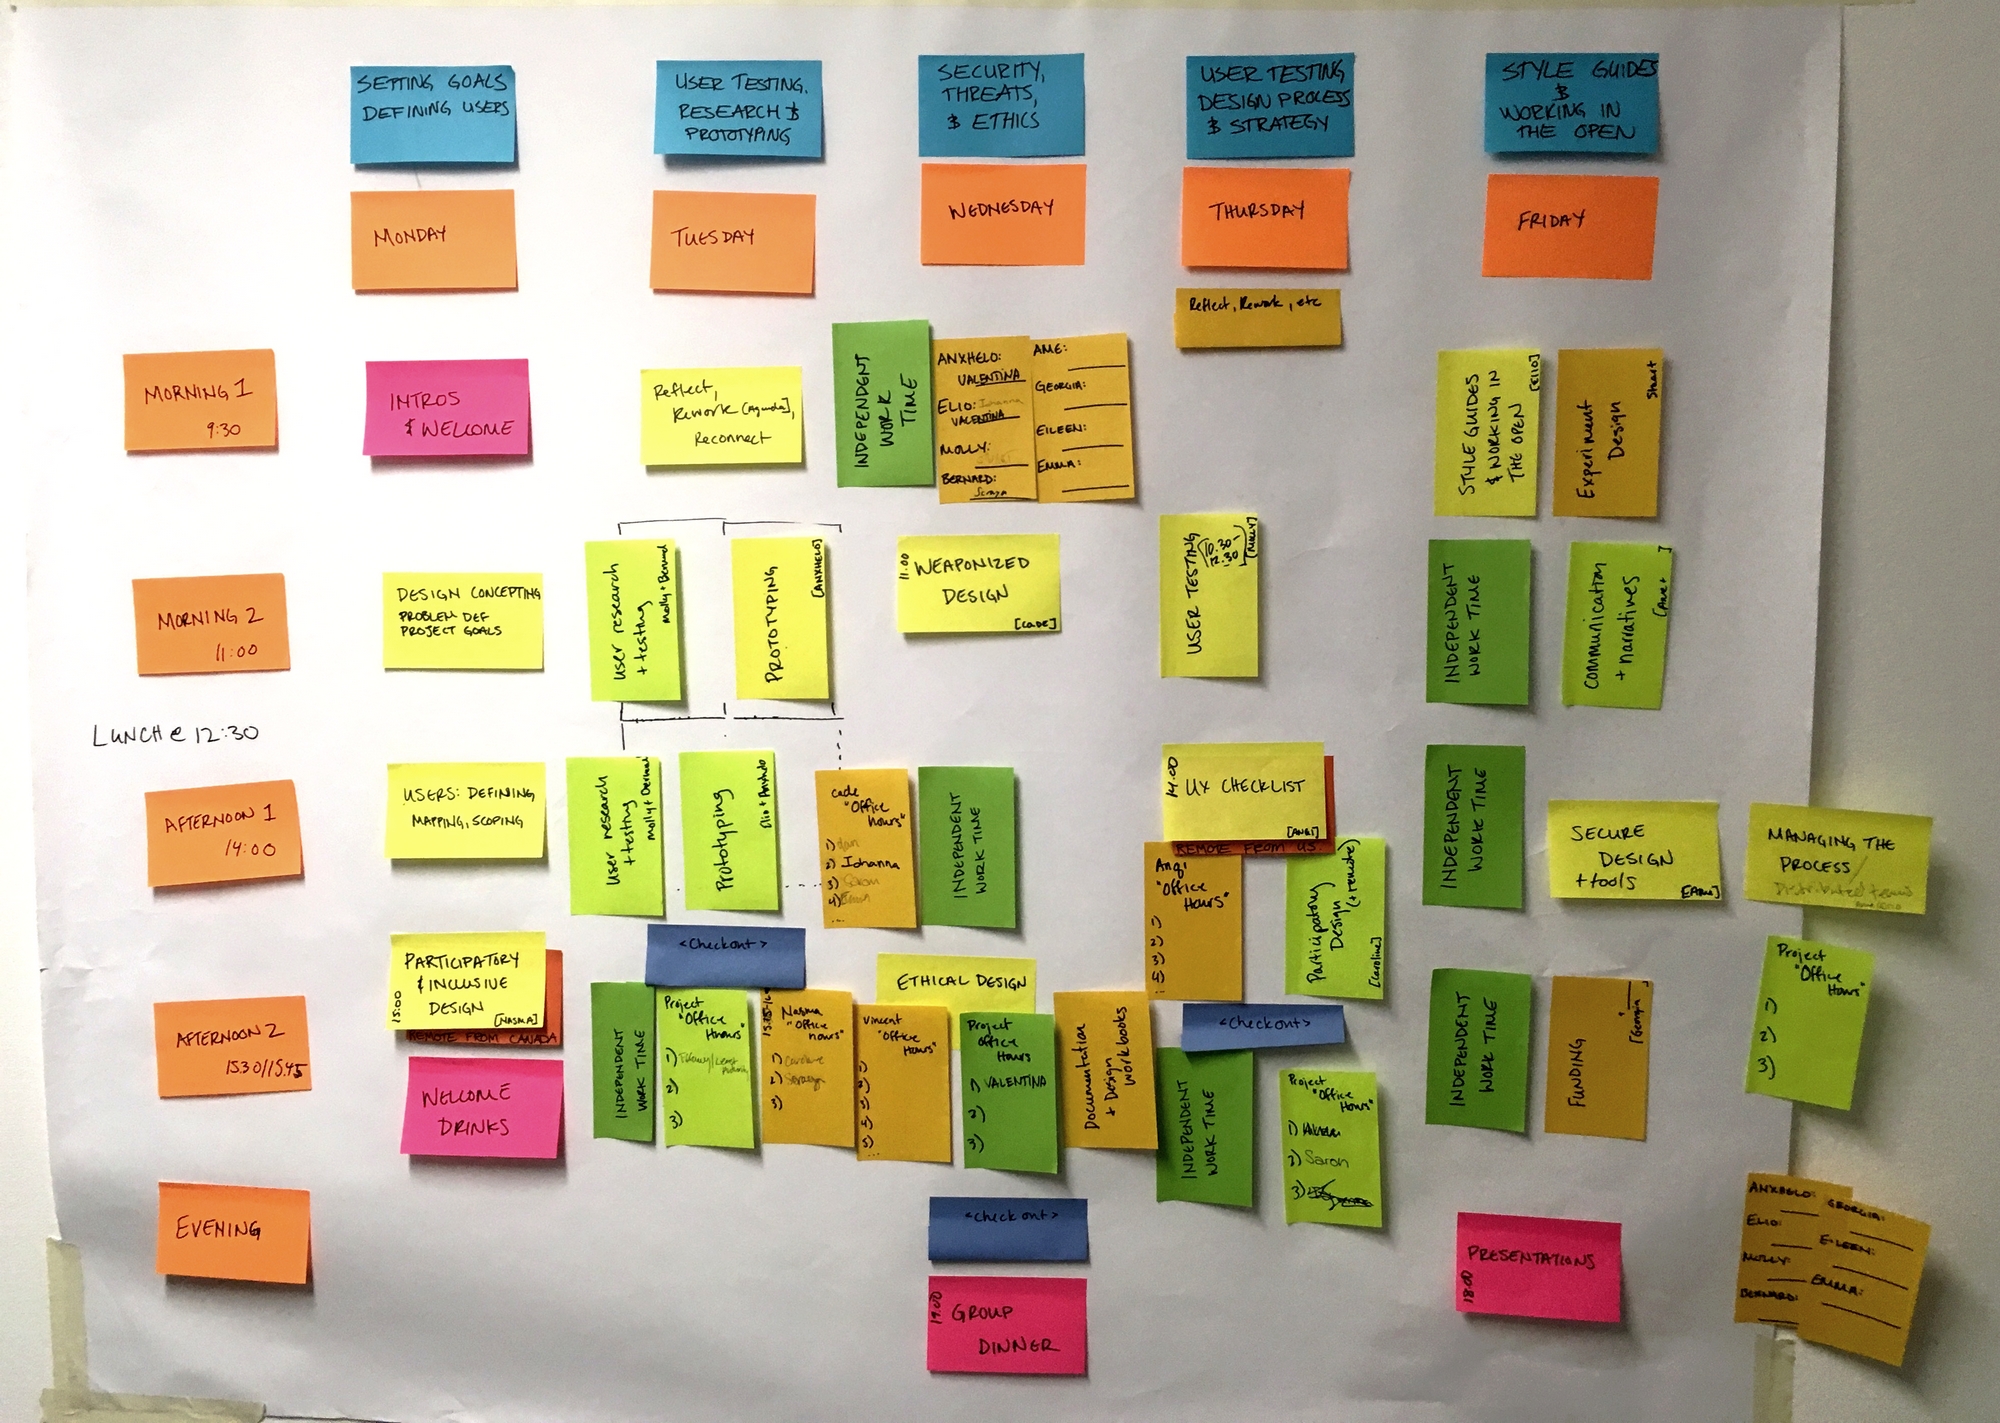 SETTING GOALS
DEFINING USERS
USER TESTING,
RESEARCH &
PROTOTYPING
SECURITY,
THREATS,
& ETHICS
USER TESTING
DESIGN PROCESS
& STRATEGY
STYLE GUIDES
&
WORKING IN
THE OPEN
MONDAY
TUESDAY
WEDNESDAY
THURSDAY
FRIDAY
Reflect, Rework, etc
MORNING 1
9:30
INTROS
& WELCOME
Reflect,
Rework [Agenda],
Reconnect
INDEPENDENT
WORK
TIME
ANXHELO:
VALENTINA
ELIO: Johanna
VALENTINA
MOLLY:
BERNARD:
Soraya
AME:
GEORGIA:
EILEEN:
EMMA:
STYLE GUIDES
& WORKING IN
THE OPEN
[ELIO]
Experiment
Design
Stuart
MORNING 2
11:00
DESIGN CONCEPTING
PROBLEM DEF
PROJECT GOALS
User research
+ testing
Molly + Bernard
PROTOTYPING
[ANXHELO]
11.00
WEAPONIZED
DESIGN
[CADE]
USER TESTING
10.30-
12.30
[MOLLY]
INDEPENDENT
WORK TIME
Communication
+ narratives
[Ame]
LUNCH @ 12:30
AFTERNOON 1
14:00
USERS: DEFINING
MAPPING, SCOPING
User research
+ testing
Molly + Bernard
Prototyping
Elio + Anxhelo
cade
"Office
hours"
1)
2) Johanna
3) Saron
4)
...
INDEPENDENT
WORK TIME
14.00
UX CHECKLIST
[ANGI]
REMOTE FROM US
Angi
"Office
Hours"
1)
2)
3)
Participatory
Design
(+ remote)
[Caroline]
INDEPENDENT
WORK TIME
SECURE
DESIGN
+ tools
[Ame]
MANAGING THE
PROCESS/
Distributed teams
AFTERNOON 2
15.30//15.45
15:00
PARTICIPATORY
& INCLUSIVE
DESIGN
[NASMA]
REMOTE FROM CANADA
WELCOME
DRINKS
<Checkout>
INDEPENDENT
WORK TIME
Project
"Office
Hours"
1)
2)
3)
Nasma
"Office
hours"
1) Caroline
2)
3)
ETHICAL DESIGN
Vincent
"Office
Hours"
1)
2)
3)
4)
5)
...
Project
Office
Hours
1) VALENTINA
2)
3)
Documentation
+ Design
Workbooks
<Checkout>
INDEPENDENT
WORK TIME
Project
"Office
Hours"
1)
2) Saron
3)
INDEPENDENT
WORK TIME
FUNDING
[Georgia]
Project
"Office
Hours"
1)
2)
3)
EVENING
<Check out>
19:00
GROUP
DINNER
18:00
PRESENTATIONS
ANXHELO:
ELIO:
MOLLY:
BERNARD:
GEORGIA:
EILEEN:
EMMA: